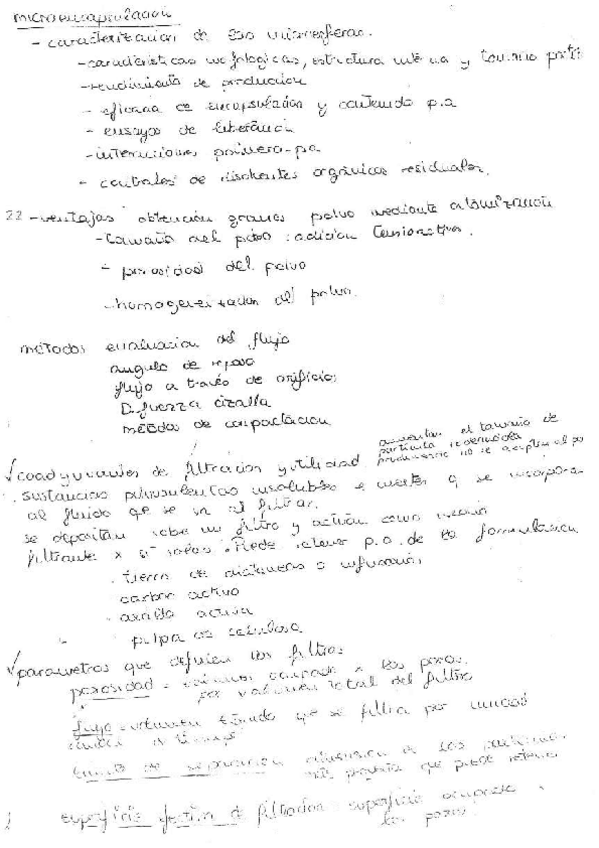 microencapsulación
- caracterización de las microesferas.
- características morfologicas, estructura interna y tamaño
- rendimiento de produccion
- eficacia de encapsulación y contenido p.a
- ensayos de liberación
- interacciones polimero-pa
- controles de disolventes orgánicos residuales.
22 - ventajas obtención granos polvo mediante atomización
- tamaño del polvo: adicion tensioactivos.
- porosidad del polvo
- homogeneización del polvo
métodos evaluación del flujo
angulo de reposo
flujo a través de orificios
D. fuerza cizalla
métodos de compactacion
✓ coadyuvantes de filtración y utilidad
aumentar el tamaño de
particula
no se
. sustancias pulverulentas insolubles e inertes q se incorpora
al fluido que se va a filtrar.
se depositan sobre un filtro y actúan como
filtrante x si solas. Puede retener p.a. de la formulacion
. tierra de diatomeas o infusorios
carbon activo
. arcilla activa
pulpa de celulosa
✓ parametros que definen los filtros
porosidad = volumen x los poros.
por volumen total del filtro
flujo = volumen liquido que se filtra por unidad
de tiempo
de separacion dimension de las particulas
más pequeña que puede retener
superficie de filtrados = superficie ocupada
los poros.